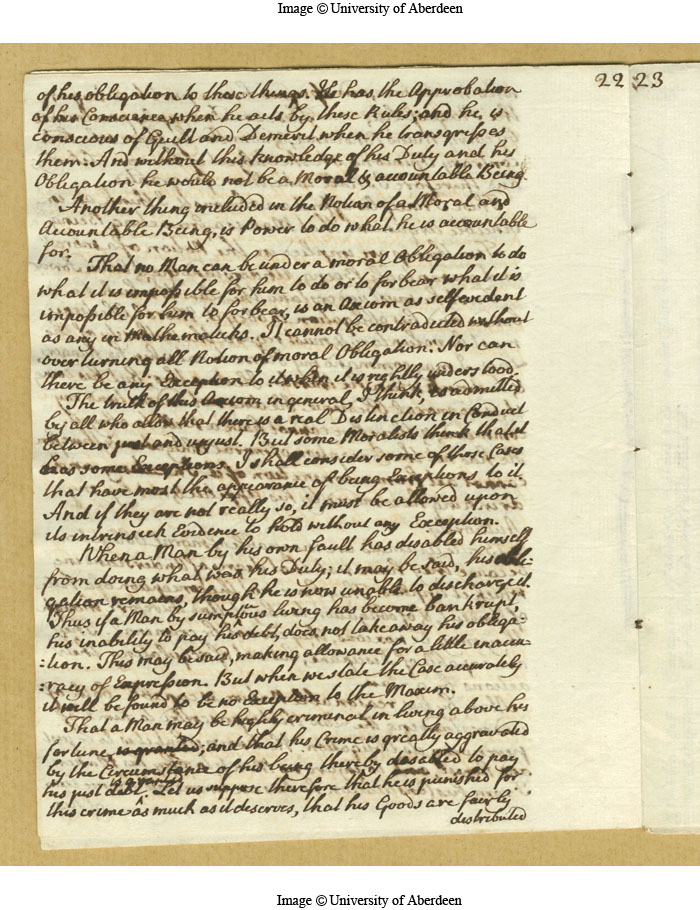 Image © University of Aberdeen
22 23
of his obligation to these things. He has the Approbation
of his Conscience when he acts by these Rules; and he is
conscious of Guilt and Demerit when he transgresses
them. And without this knowledge of his Duty and his
Obligation he would not be a Moral & accountable Being.
Another thing included in the Notion of a Moral and
Accountable Being, is Power to do what he is accountable
for.
That no Man can be under a moral Obligation to do
what it is impossible for him to do or to forbear what it is
impossible for him to forbear, is an Axiom as selfevident
as any in Mathematicks. It cannot be contradicted without
over turning all Notion of moral Obligation: Nor can
there be any Exception to it when it is rightly understood.
The truth of this Axiom in general, I think, is admitted
by all who allow that there is a real Distinction in Conduct
between just and unjust. But some Moralists think that it
has some Exceptions. I shall consider some of those Cases
that have most the appearance of being Exceptions to it.
And if they are not really so, it must be allowed upon
its intrinsick Evidence to hold without any Exception.
When a Man by his own fault has disabled himself
from doing what was his Duty; it may be said, his obli-
gation remains, though he is now unable to discharge it.
Thus if a Man by sumptuous living has become bankrupt,
his inability to pay his debt, does not take away his obliga-
:tion. This may be said, making allowance for a little inaccu-
:racy of Expression. But when we state the Case accurately
it will be found to be no Exception to the Maxim.
That a Man may be highly criminal in living above his
fortune, is granted; and that his Crime is greatly aggravated
by the Circumstance of his being thereby disabled to pay
his just debt is granted. Let us suppose therefore that he is punished for
this crime as much as it deserves, that his Goods are fairly
distributed
Image © University of Aberdeen